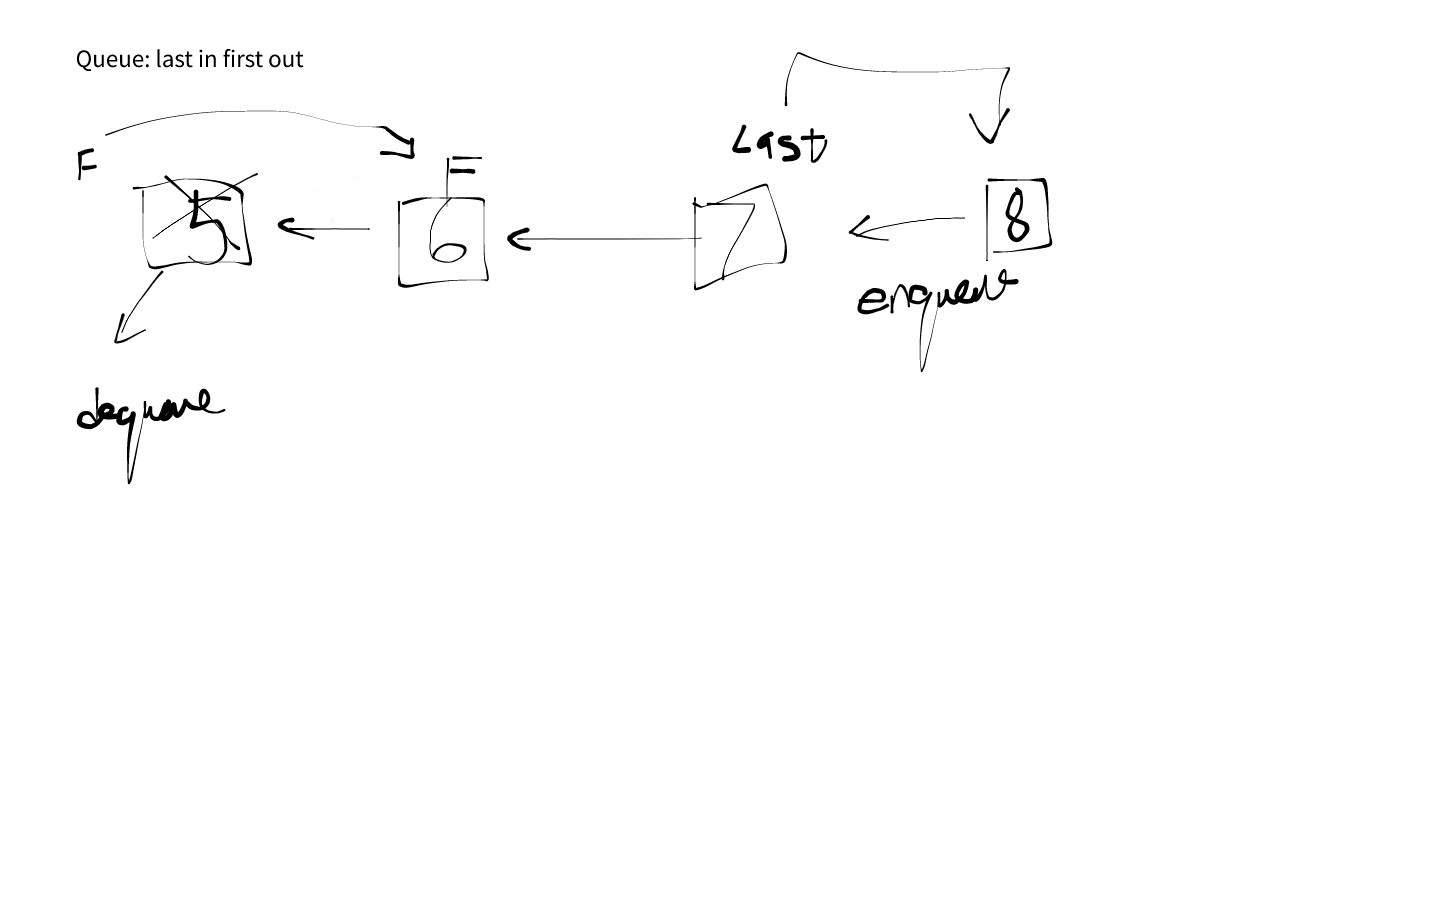 Queue: last in first out
Last
F
F
5
6
7
8
enqueue
dequeue